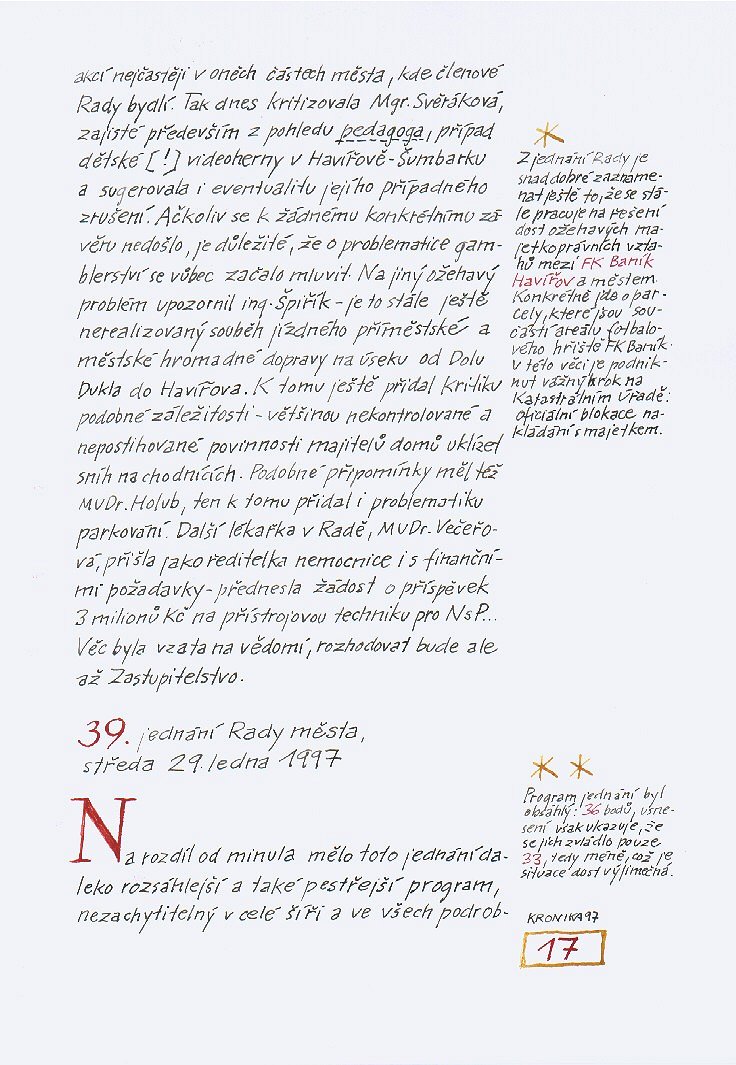 akcí nejčastěji v oněch částech města, kde členové
Rady bydlí. Tak dnes kritizovala Mgr. Svěráková,
zajisté především z pohledu pedagoga, případ
dětské [!] videoherny v Havířově-Šumbarku
a sugerovala i eventualitu jejího případného
zrušení. Ačkoliv se k žádnému konkrétnímu zá-
věru nedošlo, je důležité, že o problematice gam-
blerství se vůbec začalo mluvit. Na jiný ožehavý
problém upozornil ing. Špiřík - je to stále ještě
nerealizovaný souběh jízdného příměstské a
městské hromadné dopravy na úseku od Dolu
Dukla do Havířova. K tomu ještě přidal kritiku
podobné záležitosti - většinou nekontrolované a
nepostihované povinnosti majitelů domů uklízet
sníh na chodnících. Podobné připomínky měl též
MUDr. Holub, ten k tomu přidal i problematiku
parkování. Další lékařka v Radě, MUDr. Večeřo-
vá, přišla jako ředitelka nemocnice i s finanční-
mi požadavky - přednesla žádost o příspěvek
3 milionů Kč na přístrojovou techniku pro NsP...
Věc byla vzata na vědomí, rozhodovat bude ale
až Zastupitelstvo.
*
Z jednání Rady je
snad dobré zazname-
nat ještě to, že se stá-
le pracuje na řešení
dost ožehavých ma-
jetkoprávních vzta-
hů mezi FK Baník
Havířov a městem.
Konkrétně jde o par-
cely, které jsou sou-
částí areálu fotbalo-
vého hřiště FK Baník.
V této věci je podnik-
nut vážný krok na
Katastrálním úřadě:
oficiální blokace na-
kládání s majetkem.
39. jednání Rady města,
středa 29. ledna 1997
Na rozdíl od minula mělo toto jednání da-
leko rozsáhlejší a také pestřejší program,
nezachytitelný v celé šíři a ve všech podrob-
* *
Program jednání byl
obsáhlý: 36 bodů, usne-
sení však ukazuje, že
se jich zvládlo pouze
33, tedy méně, což je
situace dost výjimečná.
KRONIKA 97
17